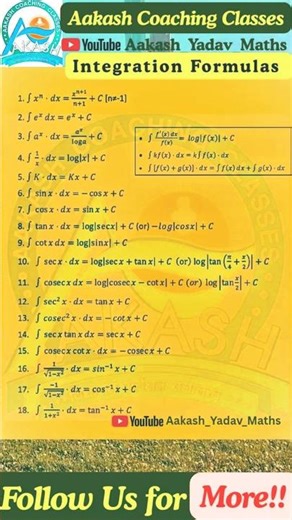 AAKASH COACHING CLASSES
Aakash Coaching Classes
YouTube Aakash Yadav Maths
Integration Formulas
1. ∫ xⁿ · dx = xⁿ⁺¹/n+1 + C [n≠-1]
2. ∫ eˣ dx = eˣ + C
3. ∫ aˣ · dx = aˣ/loga + C
4. ∫ 1/x · dx = log|x| + C
5. ∫ K · dx = Kx + C
• ∫ f'(x) dx/f(x) = log|f(x)| + C
• ∫ kf(x) · dx = k∫ f(x) · dx
• ∫[f(x) + g(x)] · dx = ∫ f(x) dx + ∫ g(x) · dx
6. ∫ sinx · dx = −cosx + C
7. ∫ cosx · dx = sinx + C
8. ∫ tanx · dx = log|secx| + C (or) −log|cosx| + C
9. ∫ cotx dx = log|sinx| + C
10. ∫ secx · dx = log|secx + tanx| + C (or) log|tan(π/4 + x/2)| + C
11. ∫ cosecx dx = log|cosecx − cotx| + C (or) log|tan x/2| + C
12. ∫ sec² x · dx = tanx + C
13. ∫ cosec² x · dx = −cotx + C
14. ∫ secx tanx dx = secx + C
15. ∫ cosecx cotx · dx = −cosecx + C
16. ∫ 1/√1−x² · dx = sin⁻¹ x + C
17. ∫ −1/√1−x² · dx = cos⁻¹ x + C
18. ∫ 1/1+x² · dx = tan⁻¹ x + C
YouTube Aakash_Yadav_Maths
Follow Us for More!!